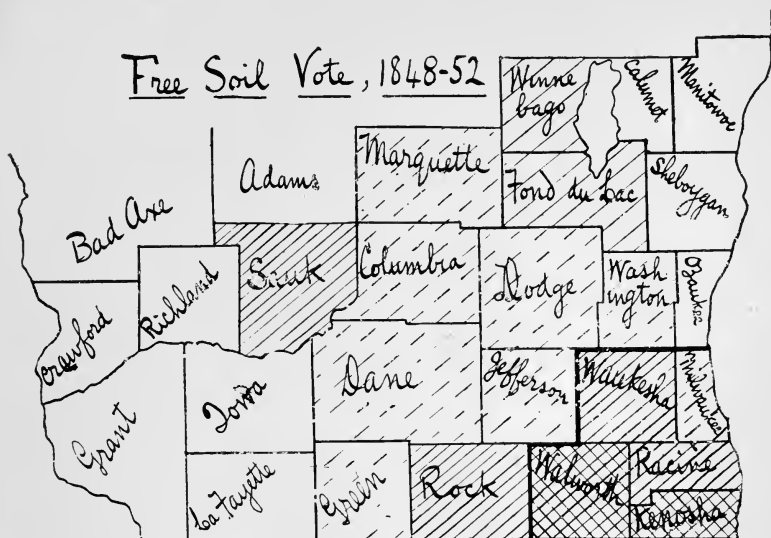 Free Soil Vote, 1848-52
Winne
bago
Calumet
Manitowoc
Marquette
Adams
Fond du Lac
Sheboygan
Bad Axe
Sauk
Columbia
Dodge
Wash
ington
Ozaukee
Richland
Crawford
Dane
Jefferson
Waukesha
Milwaukee
Iowa
Grant
La Fayette
Green
Rock
Walworth
Racine
Kenosha